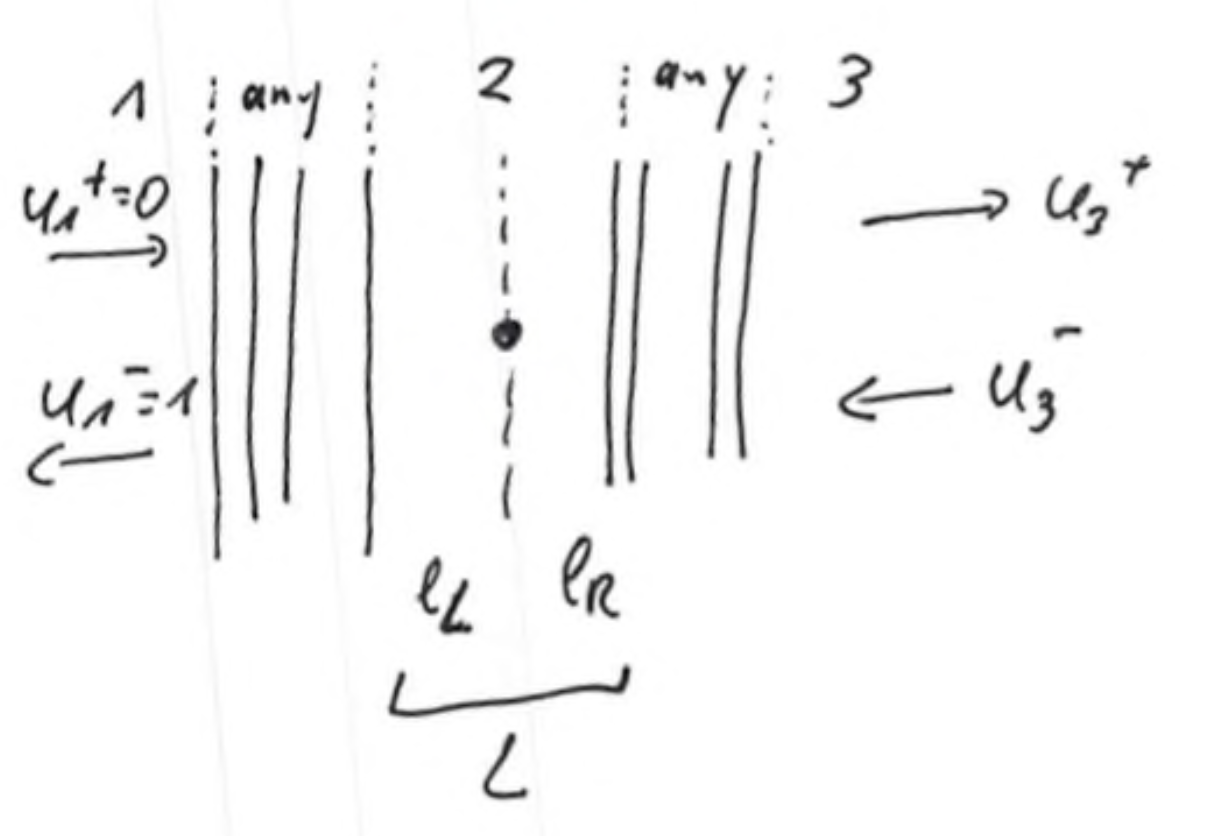 1 any 2 any 3
u₁⁺=0
u₃⁺
u₁⁻=1
u₃⁻
l_L l_R
L